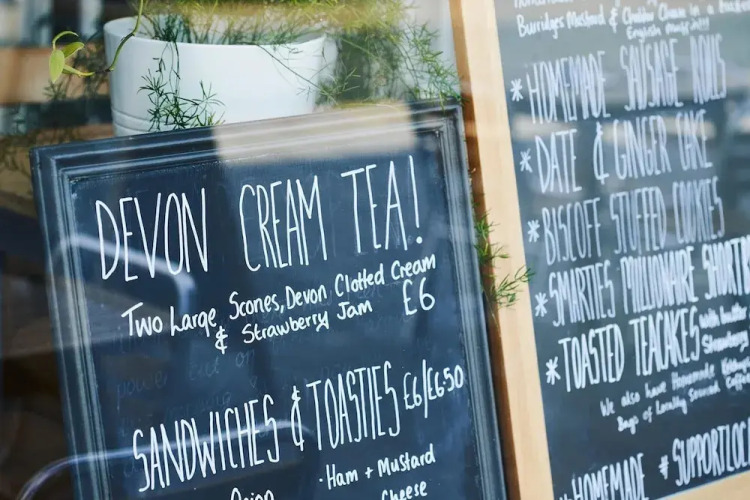 DEVON CREAM TEA!
Two Large Scones, Devon Clotted Cream
& Strawberry Jam £6
SANDWICHES & TOASTIES £6/£6.50
· Ham + Mustard
Cheese
Burridges Mustard & Cheddar Cheese in a
English
* HOMEMADE SAUSAGE ROLLS
* DATE & GINGER CAKE
* BISCOFF STUFFED COOKIES
* SMARTIES MILLIONAIRE SHORT
* TOASTED TEACAKES with butter
Strawberry
We also have Homemade
Bags of Locally Sourced
HOMEMADE # SUPPORTLOC